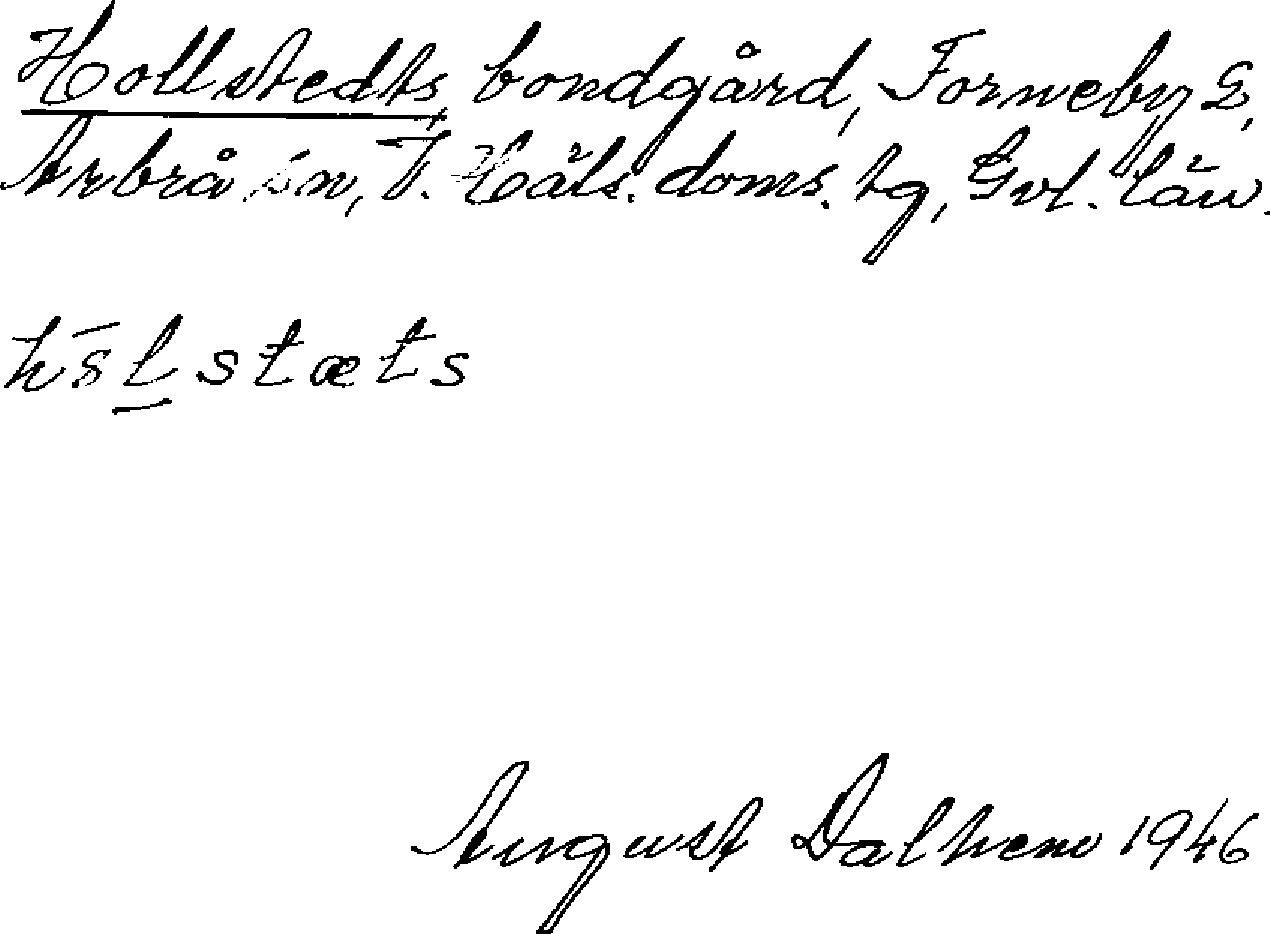 Hollstedts bondgård, Forneby 2,
Arbrå sn, V. Häls. doms. tg, Gvl. län.
stæts
August Dalhem 1946